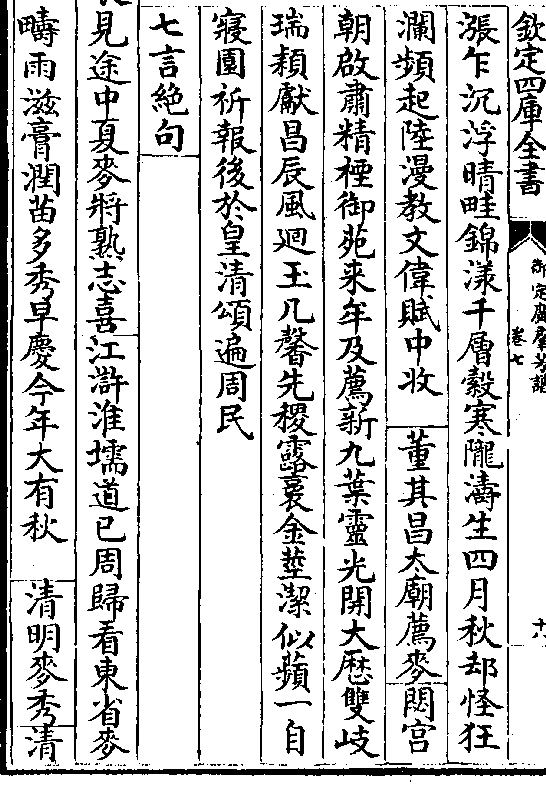 欽定四庫全書
御定廣羣芳譜
卷七
十六
漲乍沉浮晴畦錦漾千層縠寒隴濤生四月秋却怪狂
瀾頻起陸漫教文偉賦中收 董其昌太廟薦麥 閟宫
朝啟肅精禋御苑来年及薦新九葉靈光開大厯雙岐
瑞穎獻昌辰風迴玉几馨先稷露裛金莖潔似蘋一自
寢園祈報後於皇清頌遍周民
七言絶句
見途中夏麥將熟志喜 江滸淮壖道已周歸看東省麥
疇雨滋膏潤苗多秀早慶今年大有秋 清明麥秀 清